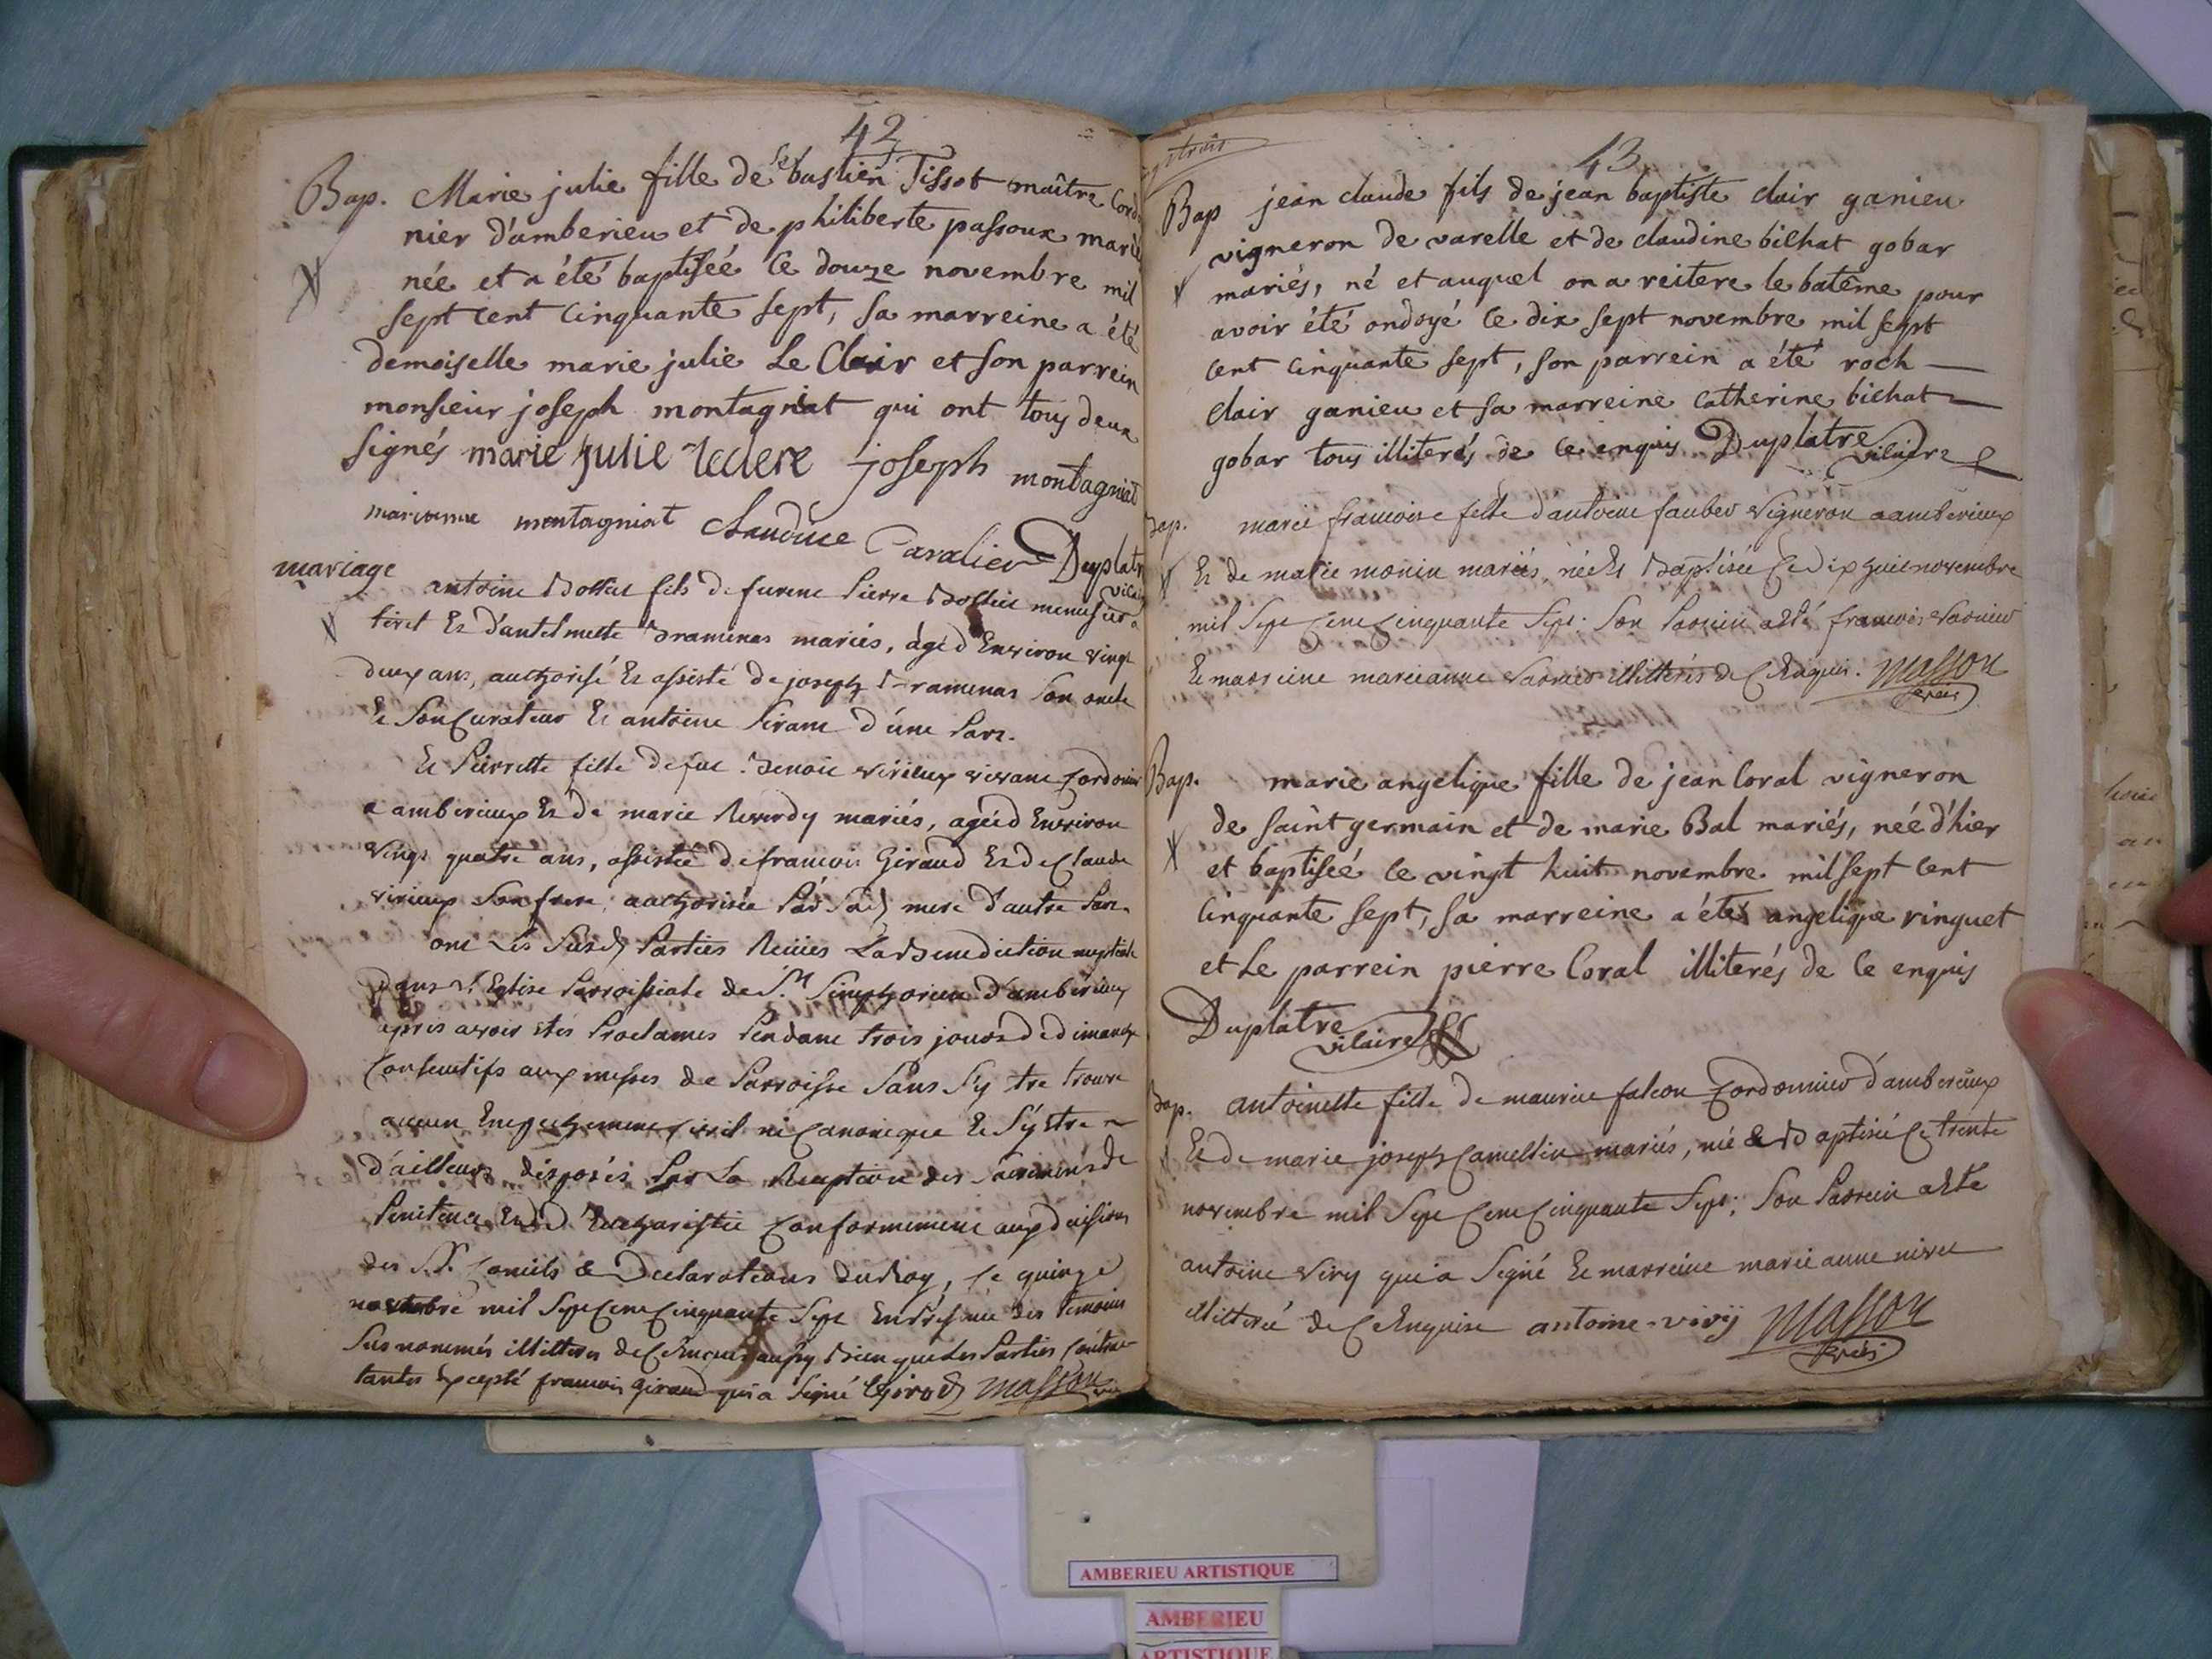 42
Bap. Marie julie fille de sebastien Tissot maître Cord
nier d'amberieu et de philiberte passoux mariés
née et a été baptisée ce douze novembre mil
sept cent cinquante sept, sa marreine a été
demoiselle marie julie Le Clair et son parrein
monsieur joseph montagniat qui ont tous deux
signés marie julie leclerc joseph montagniat
marianne montagniat Claudine Cavalier Duplatre
vicaire
mariage antoine fils de feu Pierre menusier a
tiret Et d'antelmette mariés, âgé d'Environ vingt
deux ans, authorisé Et assisté de joseph Son oncle
Et Son Curateur Et antoine d'une Part.
Et Pierrette fille de feu Benoit virieux vivant Cordonier
a amberieux Et de marie Reverdy mariés, agée d'Environ
vingt quatre ans, assistée de francois Giraud Et de Claude
virieux Son frere, authorisée Par Sad mere d'autre Part.
ont Les Susd Parties Reçües La Benediction nuptiale
Dans L'Eglise Parroissiale de St Simphorien d'amberieux
apres avoir etés Proclamés Pendant trois jours de dimanche
Consecutifs aux messes de Parroisse Sans S'y etre trouvé
aucun Empechement Civil ni Canonique Et S'y etre
d'ailleurs disposés Par La Reception des Sacremens de
Penitence Et d'Eucharistie Conformement aux decisions
des S.S. Conciles & Declarations du Roy, Ce quinze
novembre mil Sept Cent Cinquante Sept En Presence des temoins
Susnommés illitterés de Ce Enquis aussy Bien que Les Parties Contrac
tantes Excepté francois Giraud qui a Signé Girod Masson
43
Bap jean claude fils de jean baptiste clair ganieu
vigneron de varelle et de claudine bichat gobar
mariés, né et auquel on a reitere le batême pour
avoir été ondoyé ce dix sept novembre mil sept
cent cinquante sept, son parrein a été roch
clair ganieu et sa marreine catherine bichat
gobar tous illiterés de ce enquis Duplatre
vicaire
Bap. marie francoise fille d'antoine vigneron a amberieux
Et de marie monin mariés, née Et Baptisée Ce Dix huit novembre
mil Sept Cent Cinquante Sept. Son Parrein a Eté francois
Et marreine marianne illitterés de Ce Enquis. Masson
Bap. marie angelique fille de jean Coral vigneron
de saint germain et de marie Bal mariés, née d'hier
et baptisée ce vingt huit novembre mil sept cent
cinquante sept, sa marreine a été angelique vinguet
et Le parrein pierre Coral illiterés de ce enquis
Duplatre
vicaire
Bap. antoinette fille de maurice falcon Cordonnier d'amberieux
Et de marie joseph Camellin mariés, née & Baptisée Ce trente
novembre mil Sept Cent Cinquante Sept; Son Parrein a Eté
antoine Viry qui a Signé Et marreine marie anne
illitteré de Ce Enquise antoine viry Masson
AMBERIEU ARTISTIQUE
AMBERIEU
ARTISTIQUE